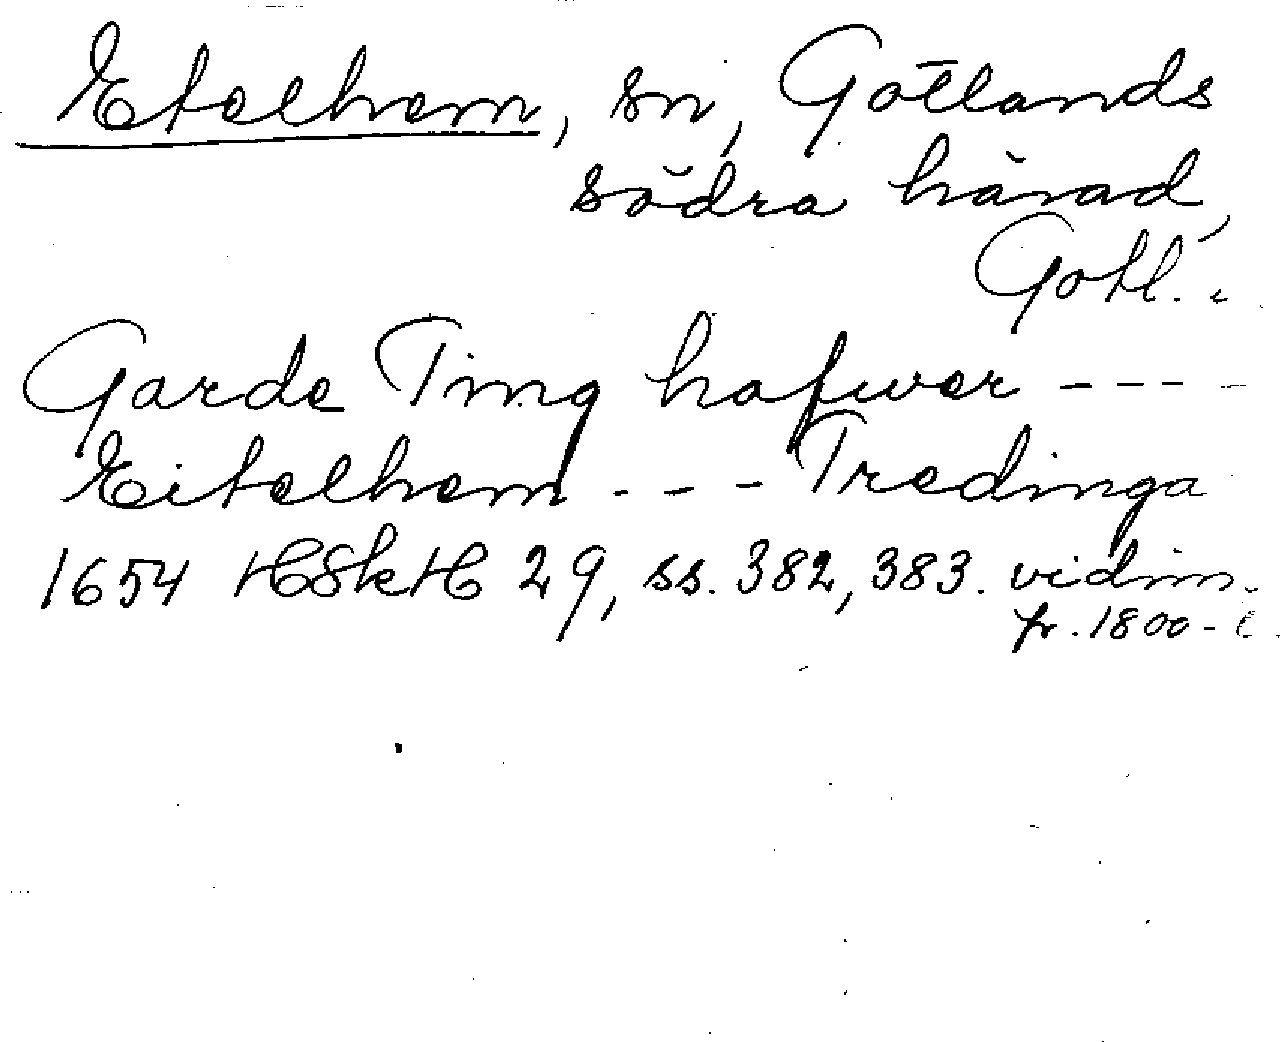 Etelhem, sn, Gotlands
södra härad,
Gotl.
Garde Ting hafwer ----
Eitelhem --- Tredinga
1654 HSkH 29, ss. 382, 383. vidim.
fr. 1800-